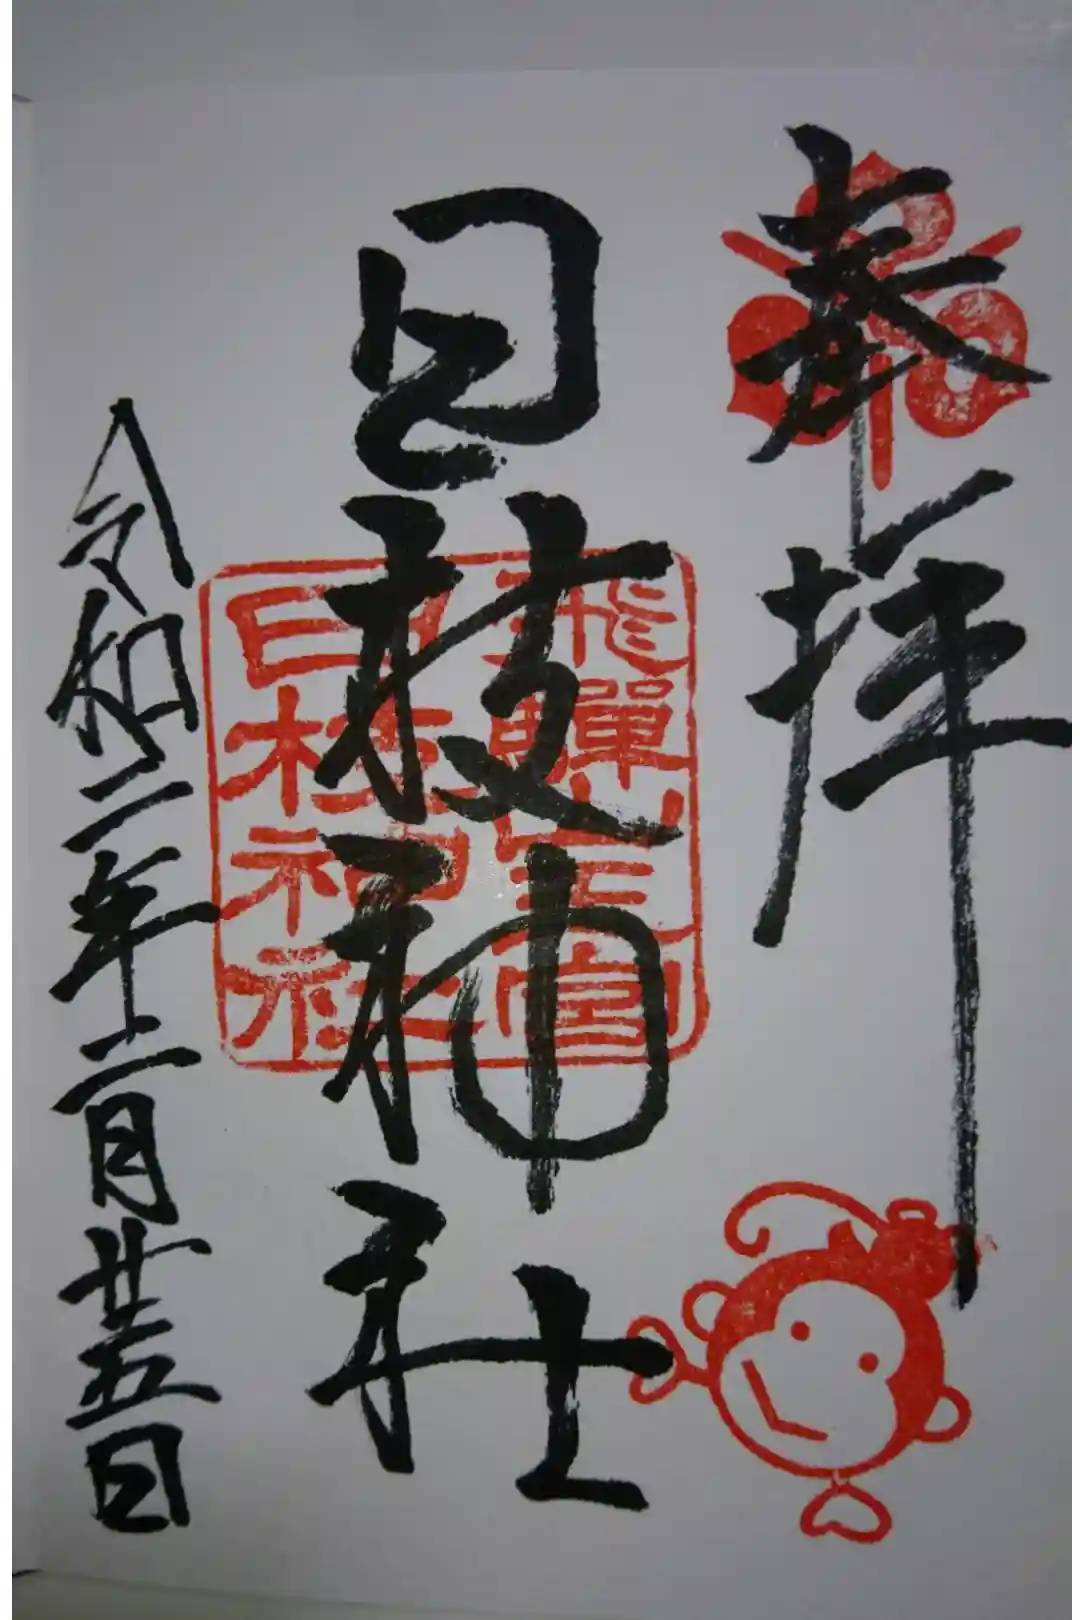 奉拝
日枝神社
飛驒山王宮
日枝神社
令和二年十二月廿五日